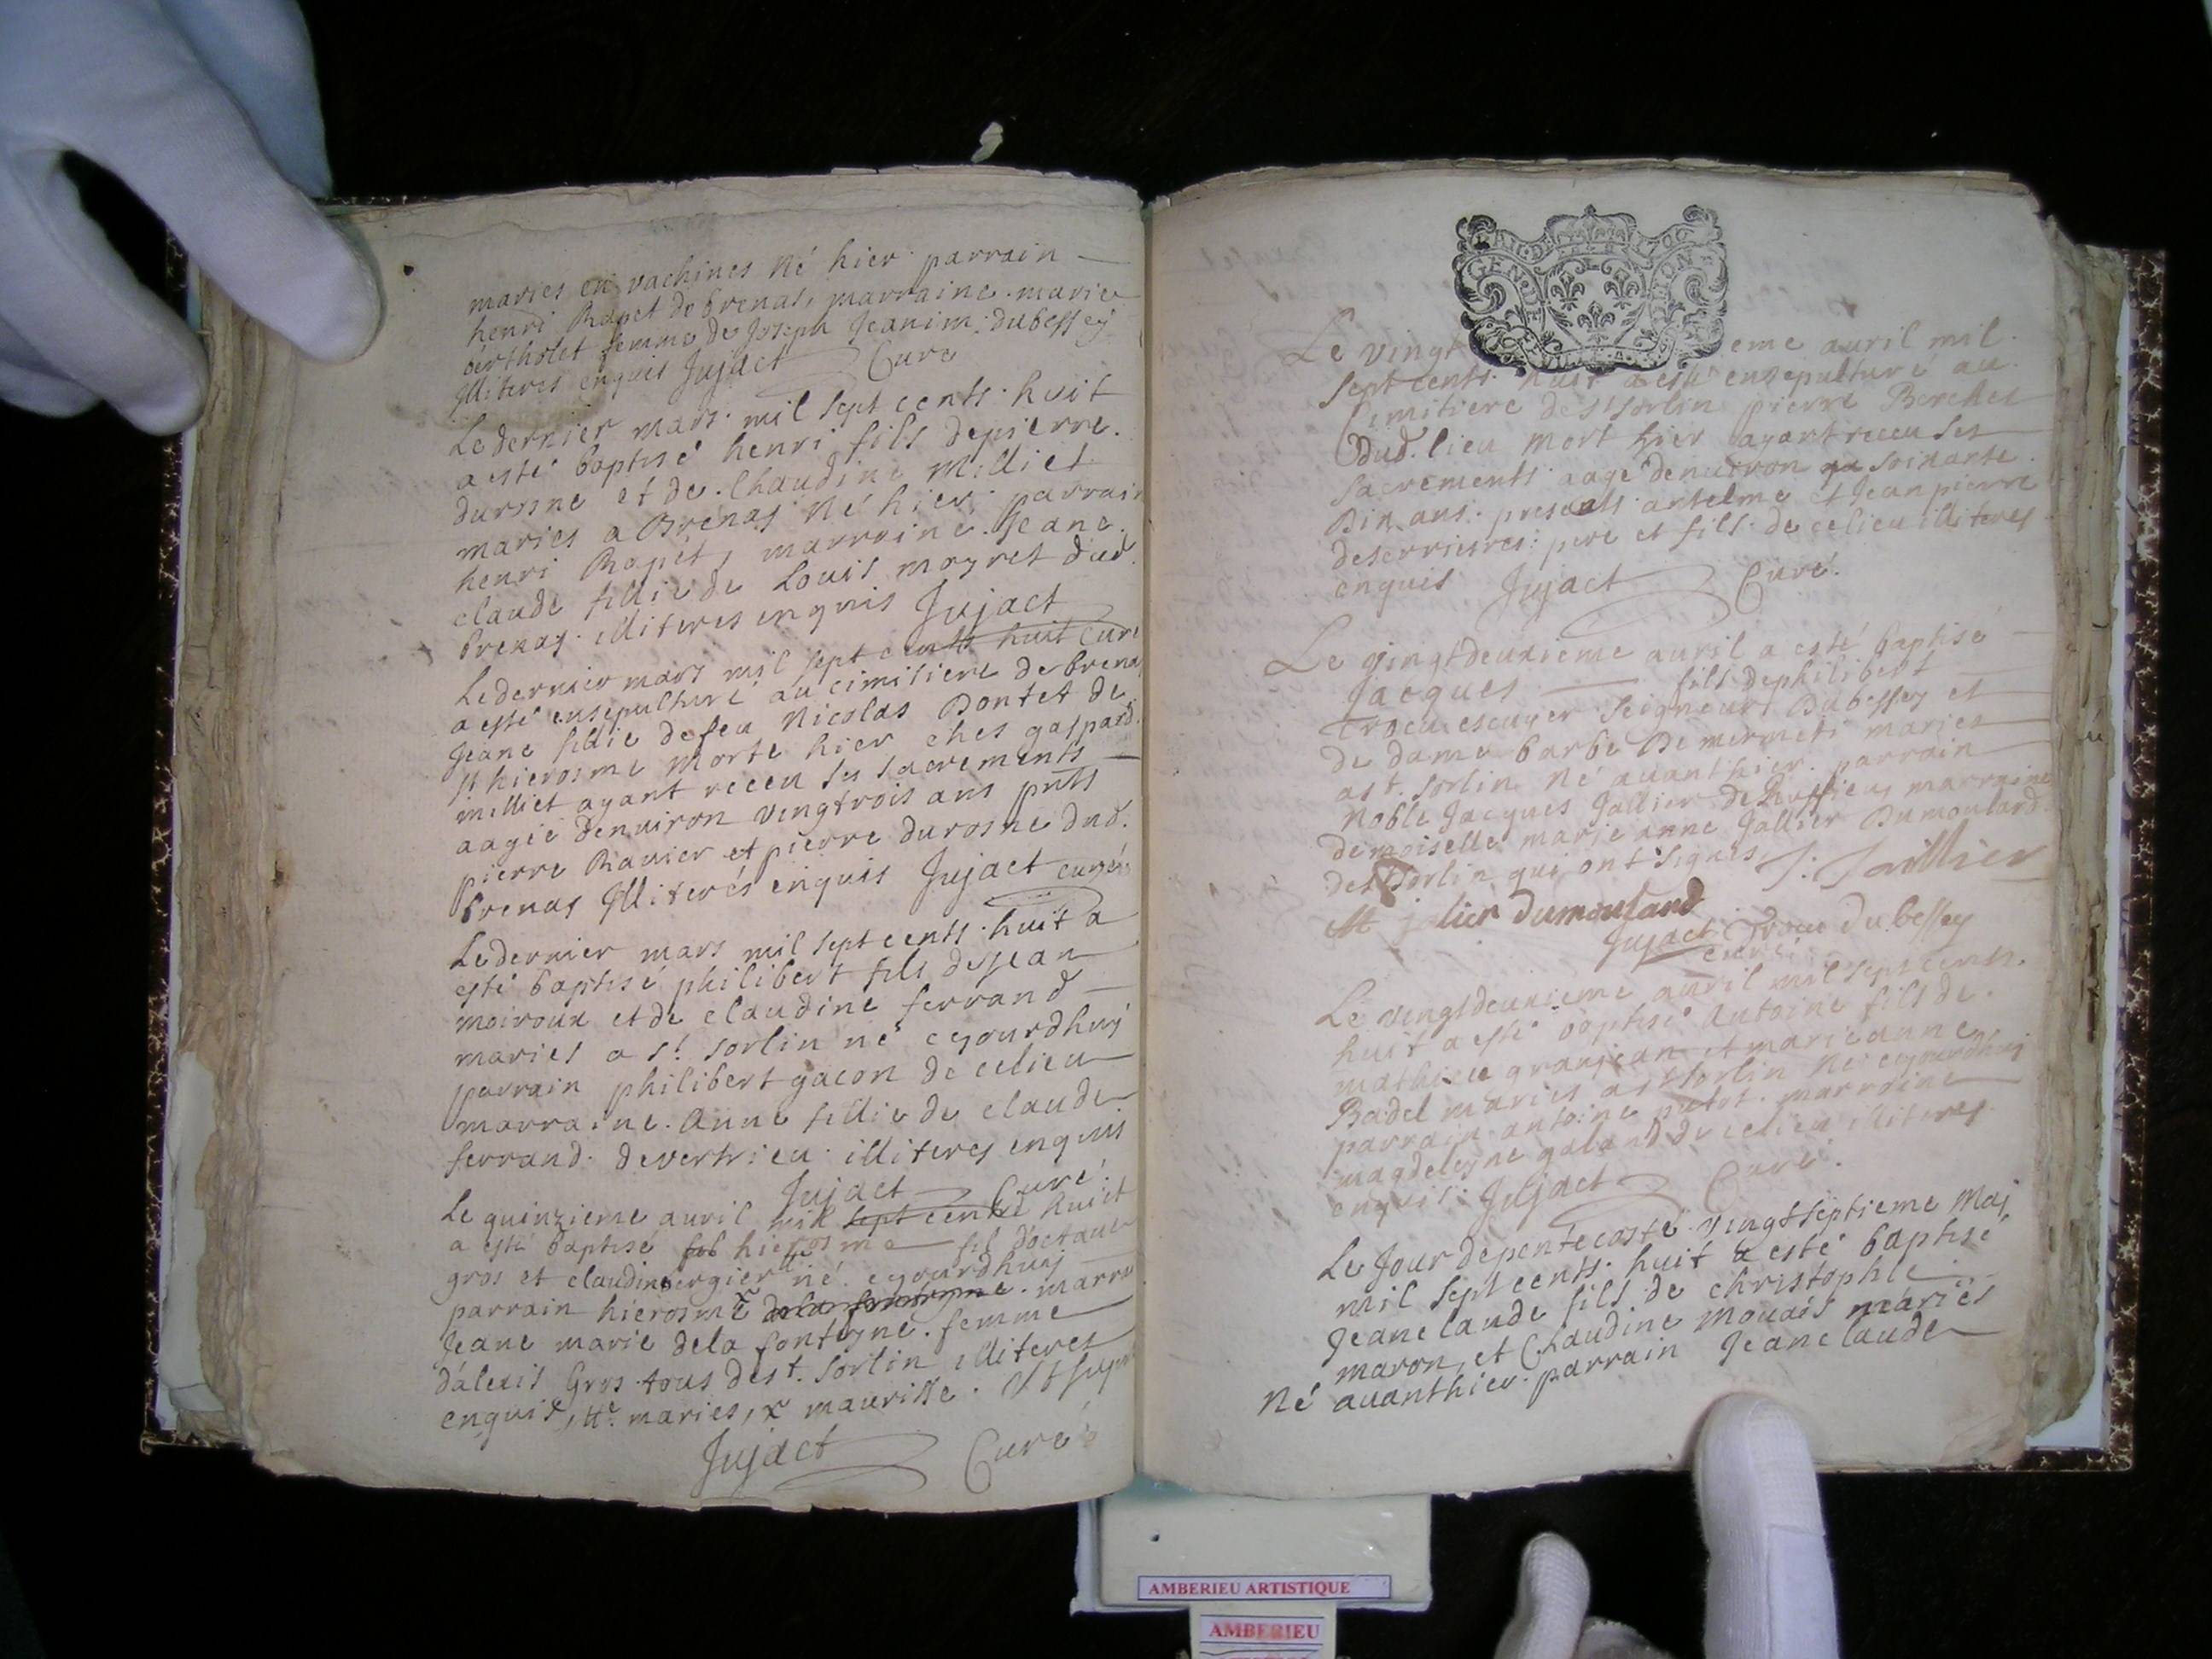 maries en vachines Né hier parrain
henri Rapet de brenas, marraine marie
bertholet femme de Joseph Jeanim dubessey
Illiteres enquis Jujact Curé
Le dernier mars mil sept cents huit
a esté baptisé henri fils depierre
durosne et de Claudine Milliet
maries a Brenas Né hier parrain
henri Rapet, marraine Jeane
claude fillie de Louis mayret dud.
brenas illiteres enquis Jujact
Curé
Le dernier mars mil sept cents huit
a esté ensepulturé au cimitiere de brenas
Jeane fillie de feu Nicolas Dontet de
st hierosme morte hier ches gaspard
milliet ayant receu ses sacrements
aagée denuiron vingtrois ans pnts
pierre Ravier et pierre durosne dud.
brenas Illiterés enquis Jujact curé
Le dernier mars mil sept cents huit a
esté baptisé philibert fils de Jean
moiroux et de claudine ferrand
maries a st. sorlin né cejourdhuy
parrain philibert gacon de celieu
marraine Anne fillie de claude
ferrand devertrieu illiteres enquis
Jujact Curé
Le quinzieme auril mil sept cents huit
a esté baptisé hierosme fil d'octaue
gros et claudine ergier né cejourdhuy
parrain hierosme dela fonteyne marr
Jeane marie dela fonteyne femme
d'alexis Gros tous dest. sorlin illiteres
enquis, maries, x maurisse
Jujact Curé
GEND 1706
Le vingt eme auril mil
sept cents huit a esté ensepulturé au
Cimitiere de st sorlin pierre Berchet
dud. lieu mort hier ayant receu ses
sacrements aagé denuiron soixante
Dix ans presents antelme et Jean pierre
deserrieres pere et fils de celieu illiteres
enquis Jujact Curé
Le vingtdeuxieme auril a esté baptisé
Jacques fils dephilibert
Trocu escuyer Seigneur Dubessey et
de dame barbe De mermeti maries
a st. Sorlin Né auanthier parrain
Noble Jacques Jallier de Ruffieu marraine
demoiselle marie anne Jallier Dumoulard
de st sorlin qui ont signés J. Jaillier
M jalier dumoulard
Jujact Trocu dubessey
curé
Le vingtdeuxieme auril mil sept cents
huit a esté baptisé Antoine fils de
mathieu granjean et marie anne
Badel maries a st sorlin Né cejourdhuy
parrain antoine marraine
magdeleyne galand de celieu illiteres
enquis Jujact Curé
Le Jour depentecoste vingtseptieme Maj
mil sept cents huit a esté baptisé
Jeanclaude fils de christophle
maron, et Claudine Mouais mariés
Né auanthier parrain Jeanclaude
AMBERIEU ARTISTIQUE
AMBERIEU